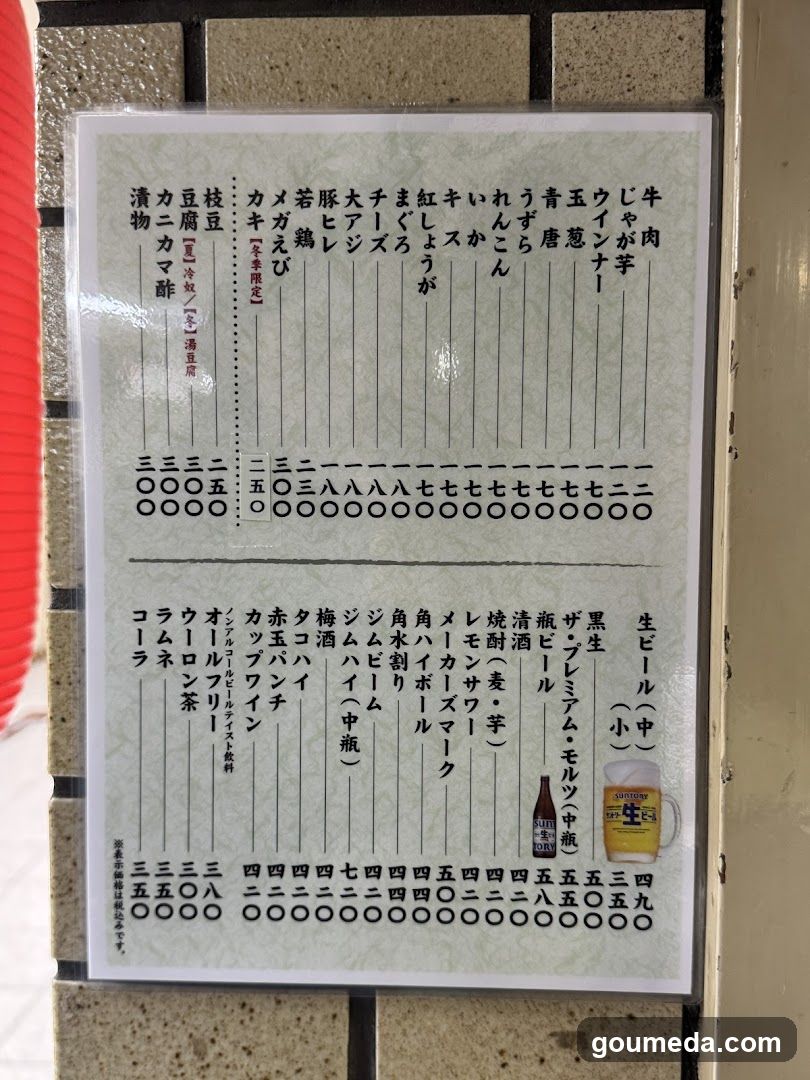 牛肉 一二〇
じゃが芋 一二〇
ウインナー 一七〇
玉葱 一七〇
青唐 一七〇
うずら 一七〇
れんこん 一七〇
いか 一七〇
キス 一七〇
紅しょうが 一七〇
まぐろ 一八〇
チーズ 一八〇
大アジ 一八〇
豚ヒレ 一八〇
若鶏 二三〇
メガえび 三〇〇
カキ【冬季限定】 二五〇
枝豆 二五〇
豆腐【夏】冷奴／【冬】湯豆腐 三〇〇
カニカマ酢 三〇〇
漬物 三〇〇
生ビール（中） 四九〇
（小） 三五〇
SUNTORY
サントリー生ビール
黒生 五〇〇
ザ・プレミアム・モルツ（中瓶） 五五〇
瓶ビール 五八〇
SUNTORY
生
清酒 四二〇
焼酎（麦・芋） 四二〇
レモンサワー 四二〇
メーカーズマーク 五〇〇
角ハイボール 四四〇
角水割り 四四〇
ジムビーム 四二〇
ジムハイ（中瓶） 七二〇
梅酒 四二〇
タコハイ 四二〇
赤玉パンチ 四二〇
カップワイン 四二〇
ノンアルコールビールテイスト飲料
オールフリー 三八〇
ウーロン茶 三〇〇
ラムネ 三五〇
コーラ 三五〇
※表示価格は税込みです。
goumeda.com